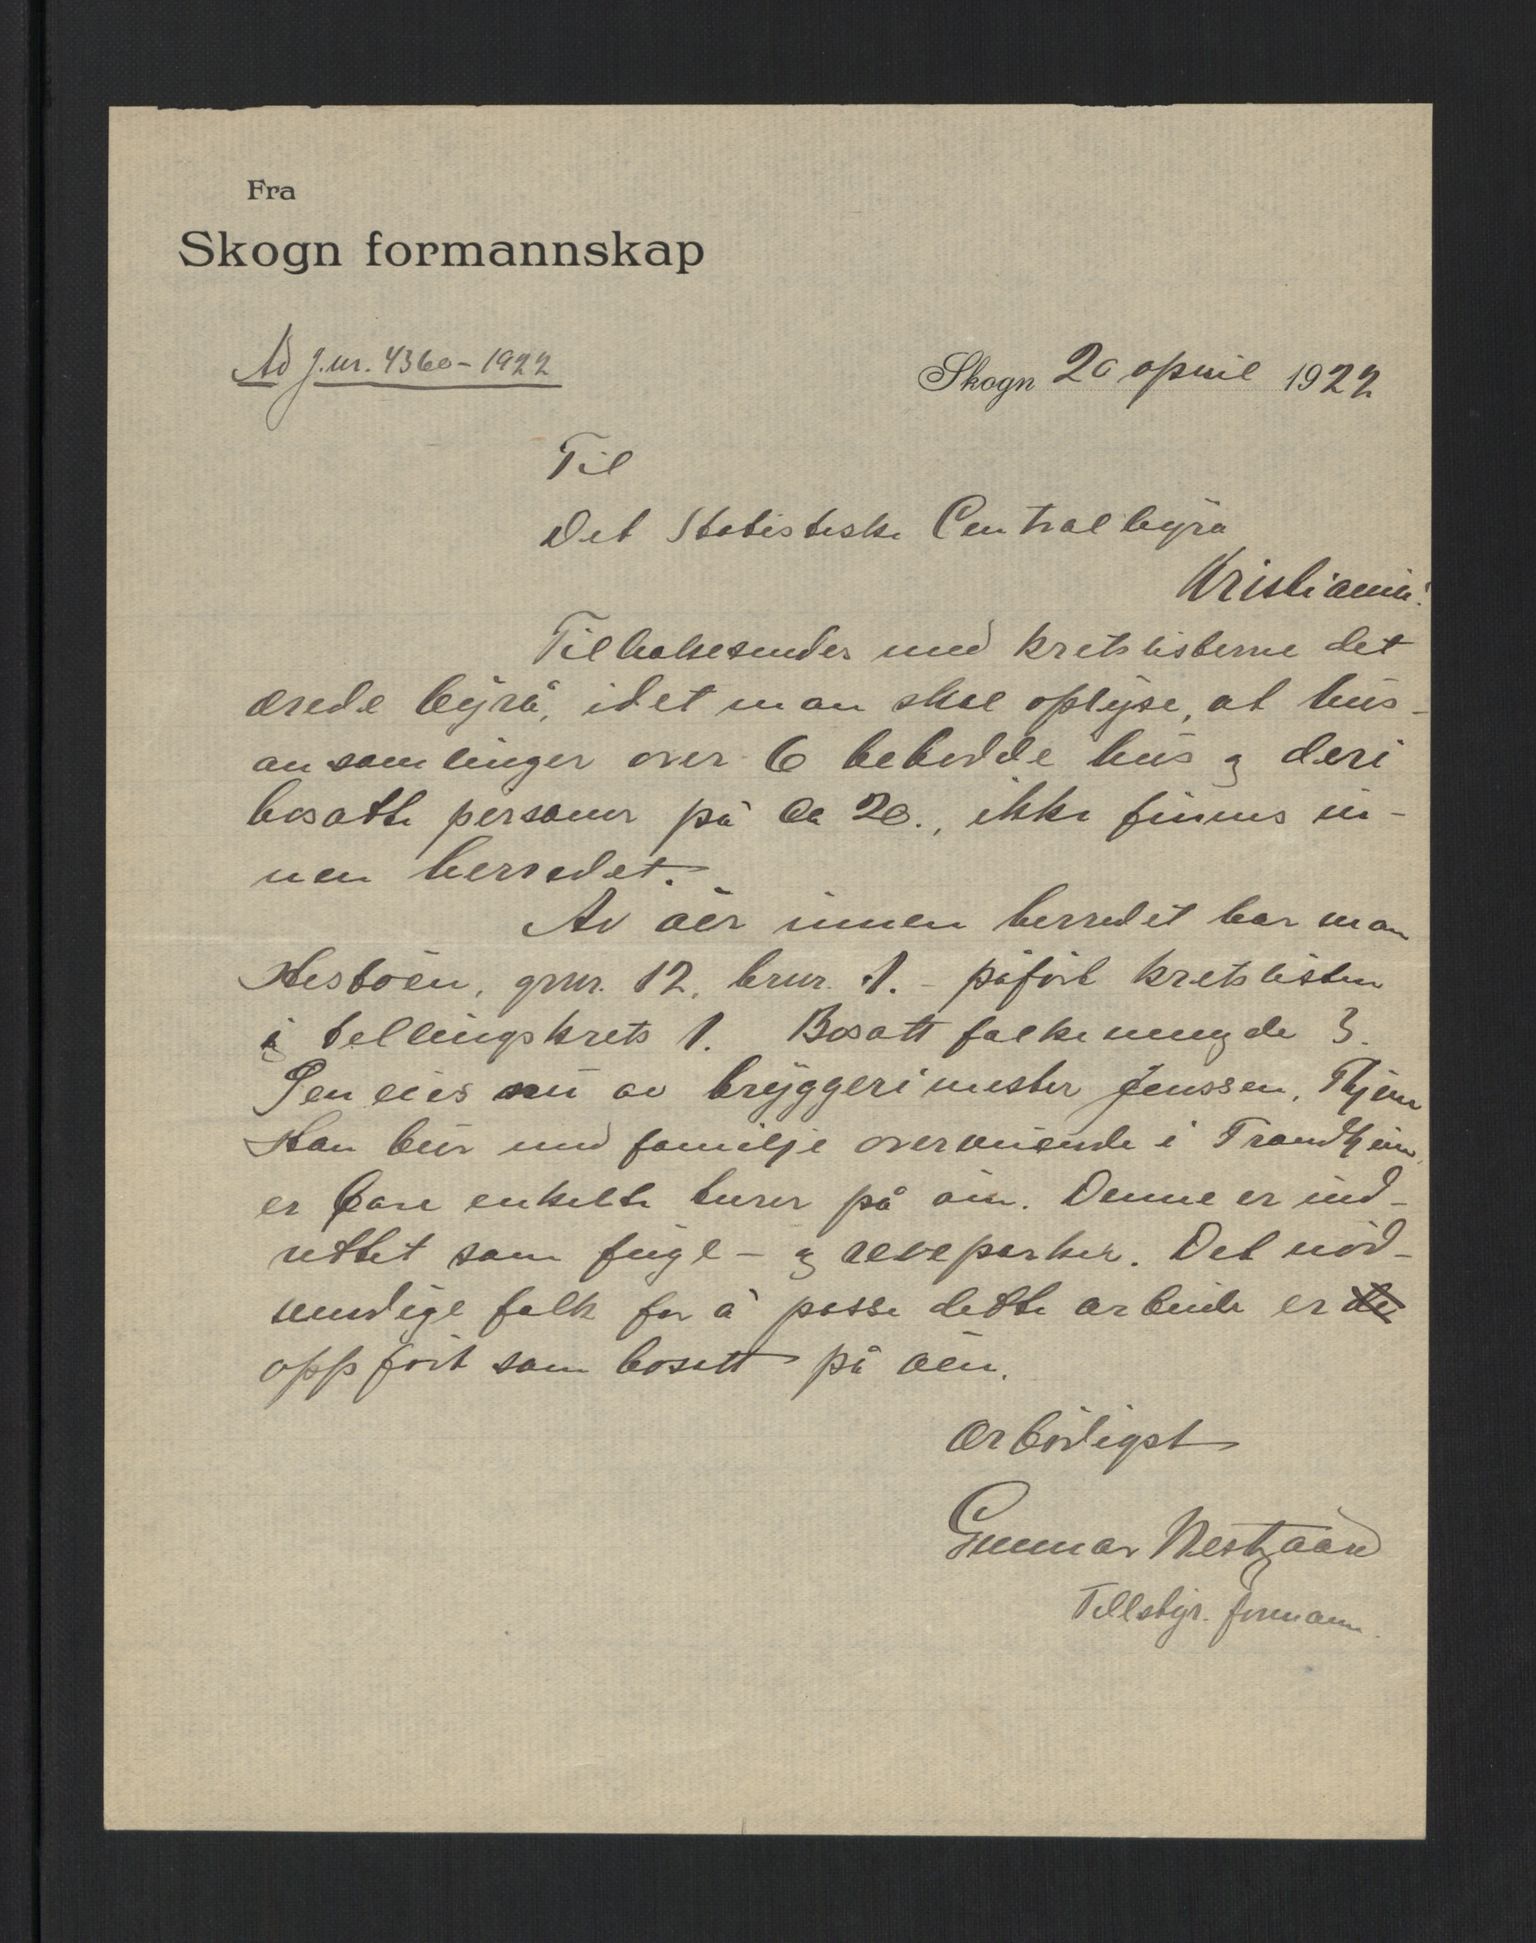 Fra
Skogn formannskap
Ad J.nr. 4360 – 1922
Skogn 20 april 1922
Til
Det Statistiske Centralbyrå
Kristiania.
Tilbakesendes med kretslisterne det
ærede byrå, idet man skal oplyse, at hus-
ansamlinger over 6 bebodde hus og deri
bosatte personer på ca 20., ikke finnes in-
nen herredet.
Av öer innen herredet har man
Hestöen, gnr. 12, brnr. 1. – påfört kretslisten
i tellingskrets 1. Bosatt folkemengde 3.
Den eies nu av bryggerimester Jenssen, Thjem
Han bur med familje overveiende i Trondhjem,
er bare enkelte turer på öen. Denne er ind-
rettet som fugl – og reveparker. Det nöd-
vendige folk for å passe dette arbeide er
oppfört som bosatt på öen.
Ærbödigst
Gunnar Nestgaard
Tellstyr. formann.